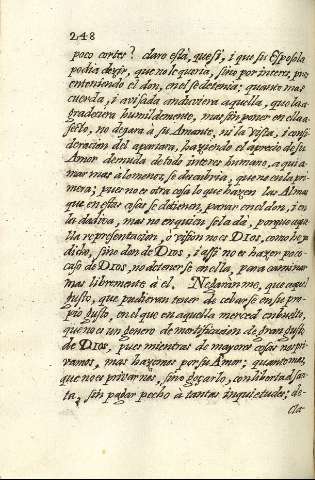 248
poco cortes? claro està, que si, i que su Esposo la
podia dezir, que no le queria, sino por interes, pues
enteniendo el don, en el se detenia: quanto mas
cuerda, i avisada anduviera aquella, que la a-
gradeciera humildemente, mas sin poner en ella a-
fecto, no depara à su Amante, ni la vista, i consi-
deracion del apartara, haziendo el aprecio de su
Amor demuda de todo interes humano, a qui a-
mar mas a lo menos, se descubria, que no en la pri-
mera; pues no es otra cosa lo que hazen las Almas
que en estas cosas se detienen, parar en el don, i en
la dadiva, mas no en quien se la dà, porque aque-
lla representacion, o vision no es DIOS, como he
dicho, sino don de DIOS, i assi no es hazer poco
caso de DIOS, no detenerse en ella, para caminar
mas libremente a el. Negaràn me, que aquel
gusto, que pudieran tener de cebarse en su pro-
pio gusto, en el que en aquella merced en buelto,
que no es un genero de mortificacion de gran gusto
de DIOS, pues mientras de mayores cosas nos pri-
vamos, mas hazemos por su Amor; quanto mas,
que no es privarnos, sino goçarlo, con libertad san-
ta, sin pagar pecho à tantas inquietudes; de-
cla